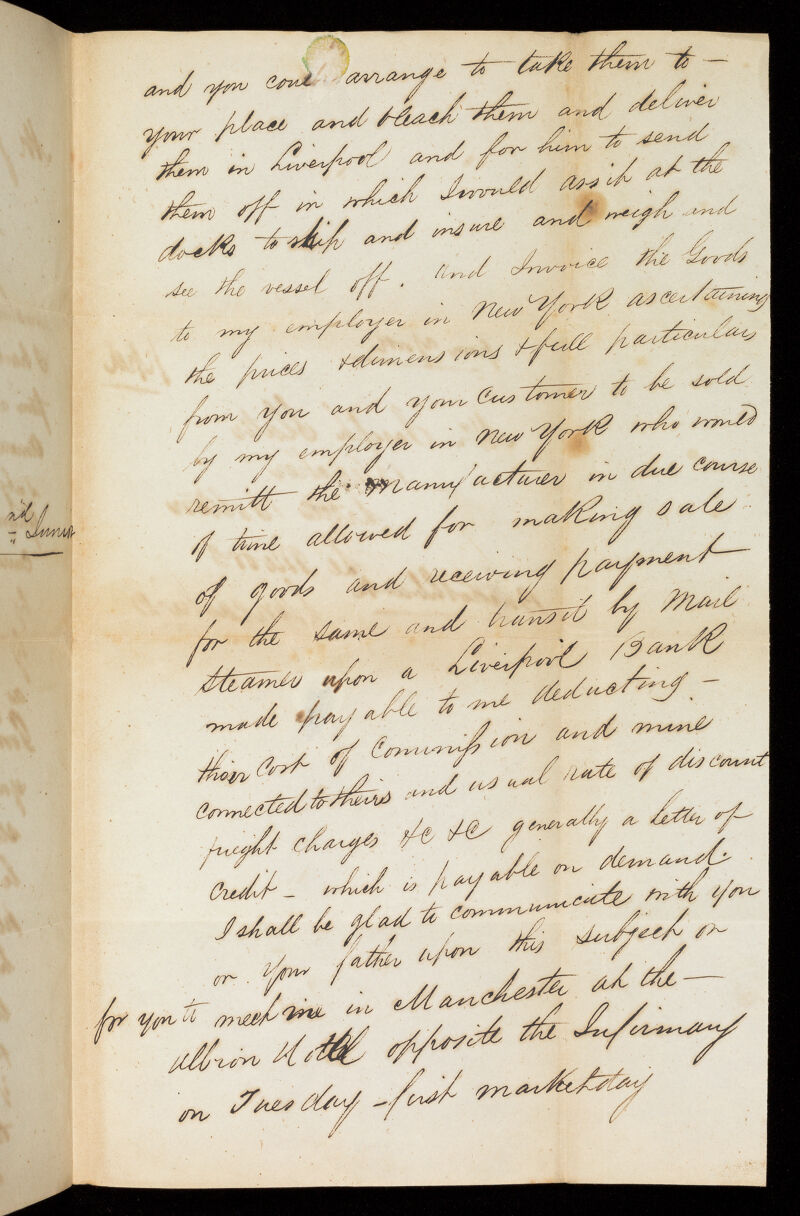 and you coud arrange to take them to –
your place and bleach them and deliver
them in Liverpool and for him to send
them off in which I would assist at the
docks to ship and insure and weigh and
see the vessel off. and Invoice the Goods
to my employer in New York ascertaining
the prices & dimensions & full particulars
from you and your customer to be sold
by my employer in New York who would
remitt the manufacturer in due course
of time allowed for making sale
of goods and receiving payment
for the same and transit by Mail
steamer upon a Liverpool Bank
made payable to me deducting –
their Cost of Commission and mine
connected to theirs and usual rate of discount
freight charges &c &c generally a Letter of
Credit – which is payable on demand.
I shall be glad to communicate with you
or your father upon this subject or
for you to meet me in Manchester at the –
Albion Hotel opposite the Infirmary
on Tuesday – first marketday